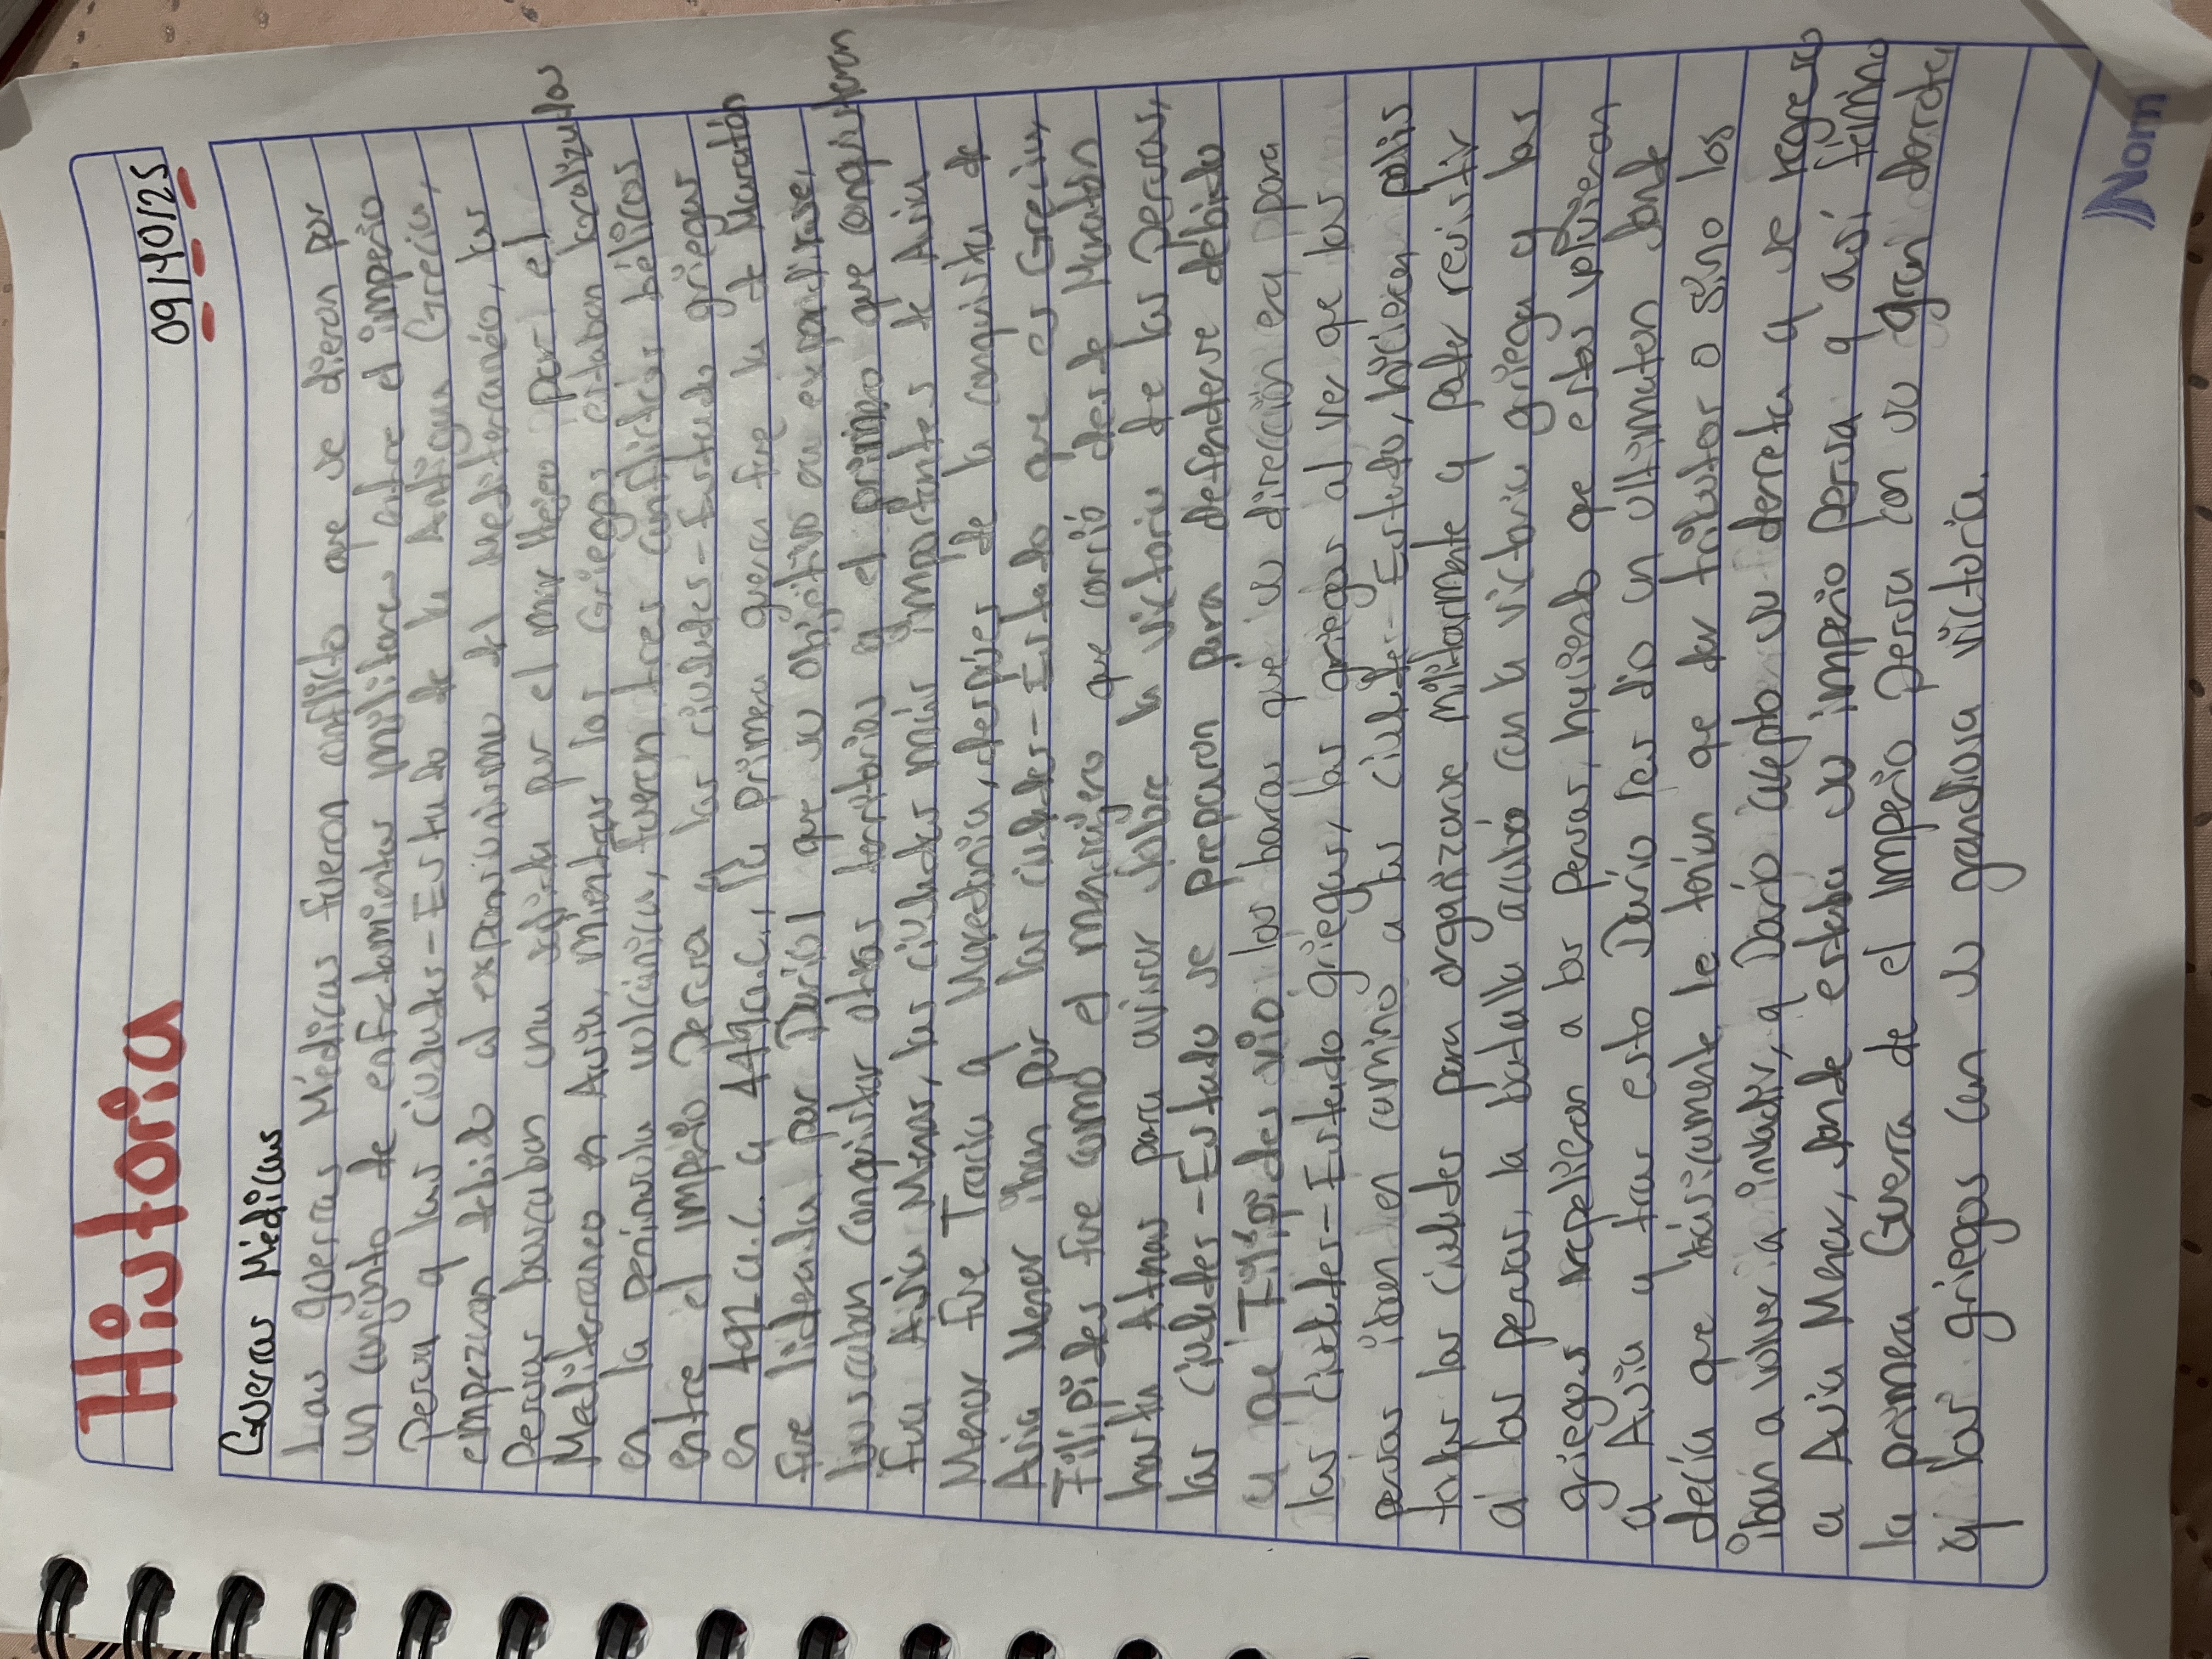 Historia
09/40/25
Guerras Médicas
Las guerras Médicas fueron conflicto que se dieron por
un conjunto de enfretamientos militares entre el imperio
Persa y las ciudades-Estado de la Antigua Grecia,
empezaron debido al expansionismo del mediterraneo, los
Persas buscaban una salida por el mar Hejeo por el
Mediterraneo en Asia, mientras los Griegos estaban localizados
en la peninsula volcánica, fueron tres conflictos bélicos
entre el imperio Persa las ciudades-Estado griegas
en 492 a.C. a 449 a.C., la primera guerra fue la de Maratón
fue liderada por Dario I que su objetivo era expandirse,
buscaban conquistar otros territorios y el primero que conquistaron
fue Asia Menor, las ciudades más importantes de Asia
Menor fue Tracia y Macedonia, despúes de la conquista de
Asia Menor iban por las ciudades-Estado que es Grecia,
Filípides fue como el mensajero que corrió desde Maratón
hasta Atenas para avisar sobre la victoria de los Persas,
las ciudades-Estado se preparon para defenderse debido
a que Filípides vio los barcos que su dirección era para
las ciudades-Estado griegas, los griegos al ver que los
persas iban en camino a las ciudades-Estado, hicieron polis
todas las ciudades para organizarse militarmente y poder resistir
a los persas, la batalla acabó con la victoria griega y los
griegos repelieron a los persas, haciendo que estos volvieran
a Asia y tras esto Darío les dio un ultimaton donde
decía que básicamente le tenían que dar tributos o sino los
iban a volver a invadir, y Darío acepto su derrota y se regreso
a Asia Menor, donde estaba su imperio persa y así termino
la primera Guerra de el Imperio Persa con su gran derrota
y los griegos con su grandiosa victoria.
Norm